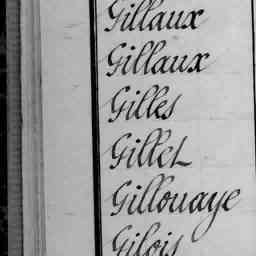 Gillaux
Gillaux
Gilles
Gillet
Gillouaye
Gilois